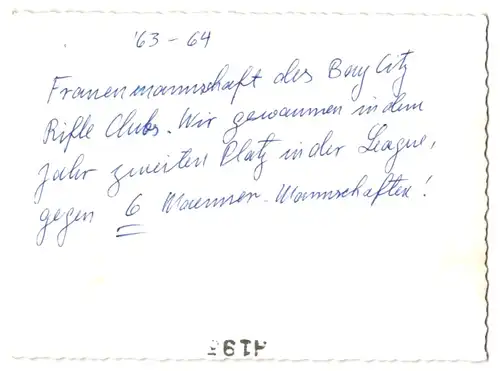 '63 - 64
Frauenmannschaft des Bay City
Rifle Clubs. Wir gewannen in dem
Jahr zweiten Platz in der League,
gegen 6 Maenner-Mannschaften!